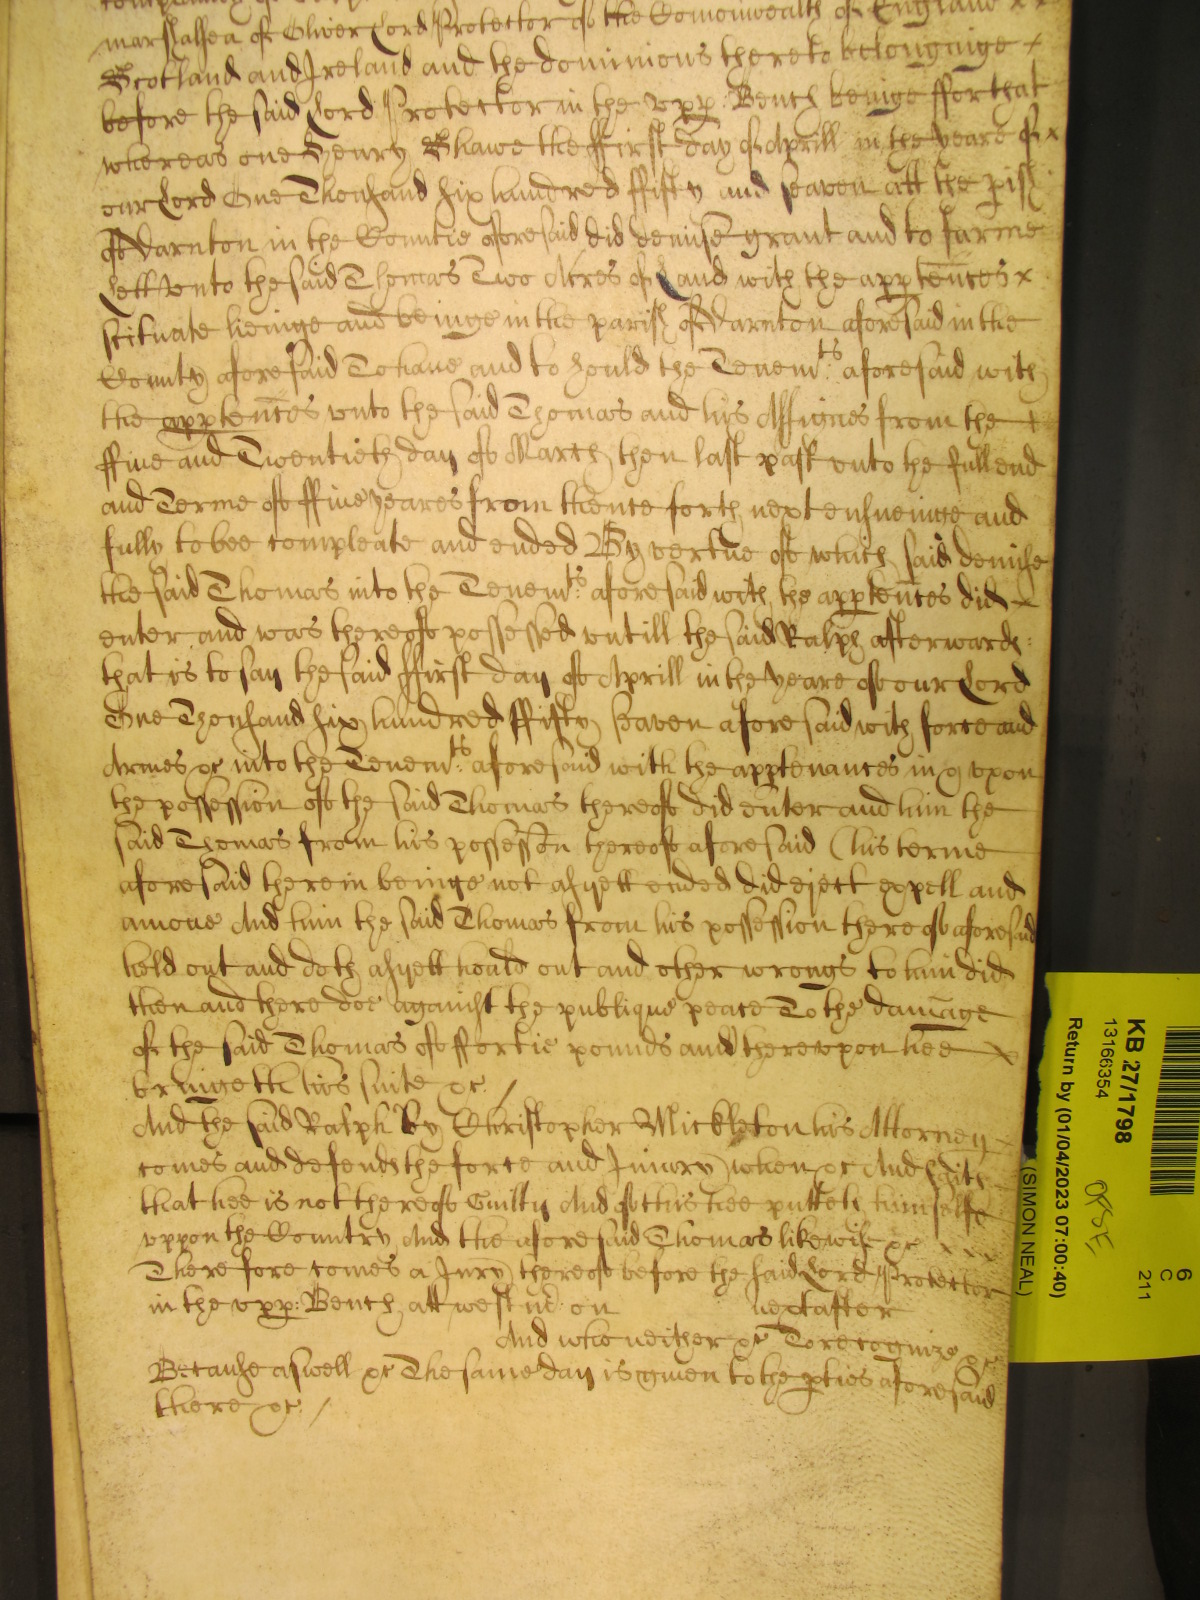 marshalsea of Oliver Lord Protector of the Comonwealth of England x x
Scotland and Ireland and the dominions thereto belonginge x
before the said Lord Protector in the upp: Bench beinge ffor that
whereas one Henry Shawe the ffirst day of Aprill in the yeare of x
our Lord One Thousand six hundred ffifty and seaven att the pish
of Darnton in the Countie aforesaid did demise grant and to farme
Lett unto the said Thomas Two Acres of Land with the apptenñces x
scituate lieinge and beinge in the parish of Darnton aforesaid in the
County aforesaid To have and to hould the Tenemts: aforesaid with
the apptenñces unto the said Thomas and his Assignes from the x
ffive and Twentieth day of March then last past unto the full end
and Terme of ffive yeares from thence forth next ensueinge and
fully to bee compleate and ended By vertue of which said demise
the said Thomas into the Tenemts: aforesaid with the apptenñces did x
enter and was thereof possessed untill the said Ralph afterwards:
that is to say the said ffirst day of Aprill in the yeare of our Lord
One Thousand six hundred ffifty seaven aforesaid with force and
Armes &c into the Tenemts: aforesaid with the apptenances in & upon
the possession of the said Thomas thereof did enter and him the
said Thomas from his possessõn thereof aforesaid (his terme
aforesaid therein beinge not asyett ended did eject expell and
amove And him the said Thomas from his possession thereof aforesaid
held out and doth asyett hould out and other wrongs to him did
then and there doe against the publique peace To the damãge
of the said Thomas of ffortie pounds and thereupon hee x
bringeth his suite &c: /
And the said Ralph by Christopher Mickleton his Attorney x
comes and defends the force and Injury when &c And saith
that hee is not thereof Guilty And of this hee putteth himselfe
uppon the Country And the aforesaid Thomas likewise &c x x x
Therefore comes a Jury thereof before the said Lord Protector
in the upp: Bench att westm̃: on next after
And who neither &c To recognize &c
Because aswell &c The same day is given to the pties aforesaid
there &c: /
KB 27/1798
13166354
Return by (01/04/2023 07:00:40)
(SIMON NEAL)
6
C
211